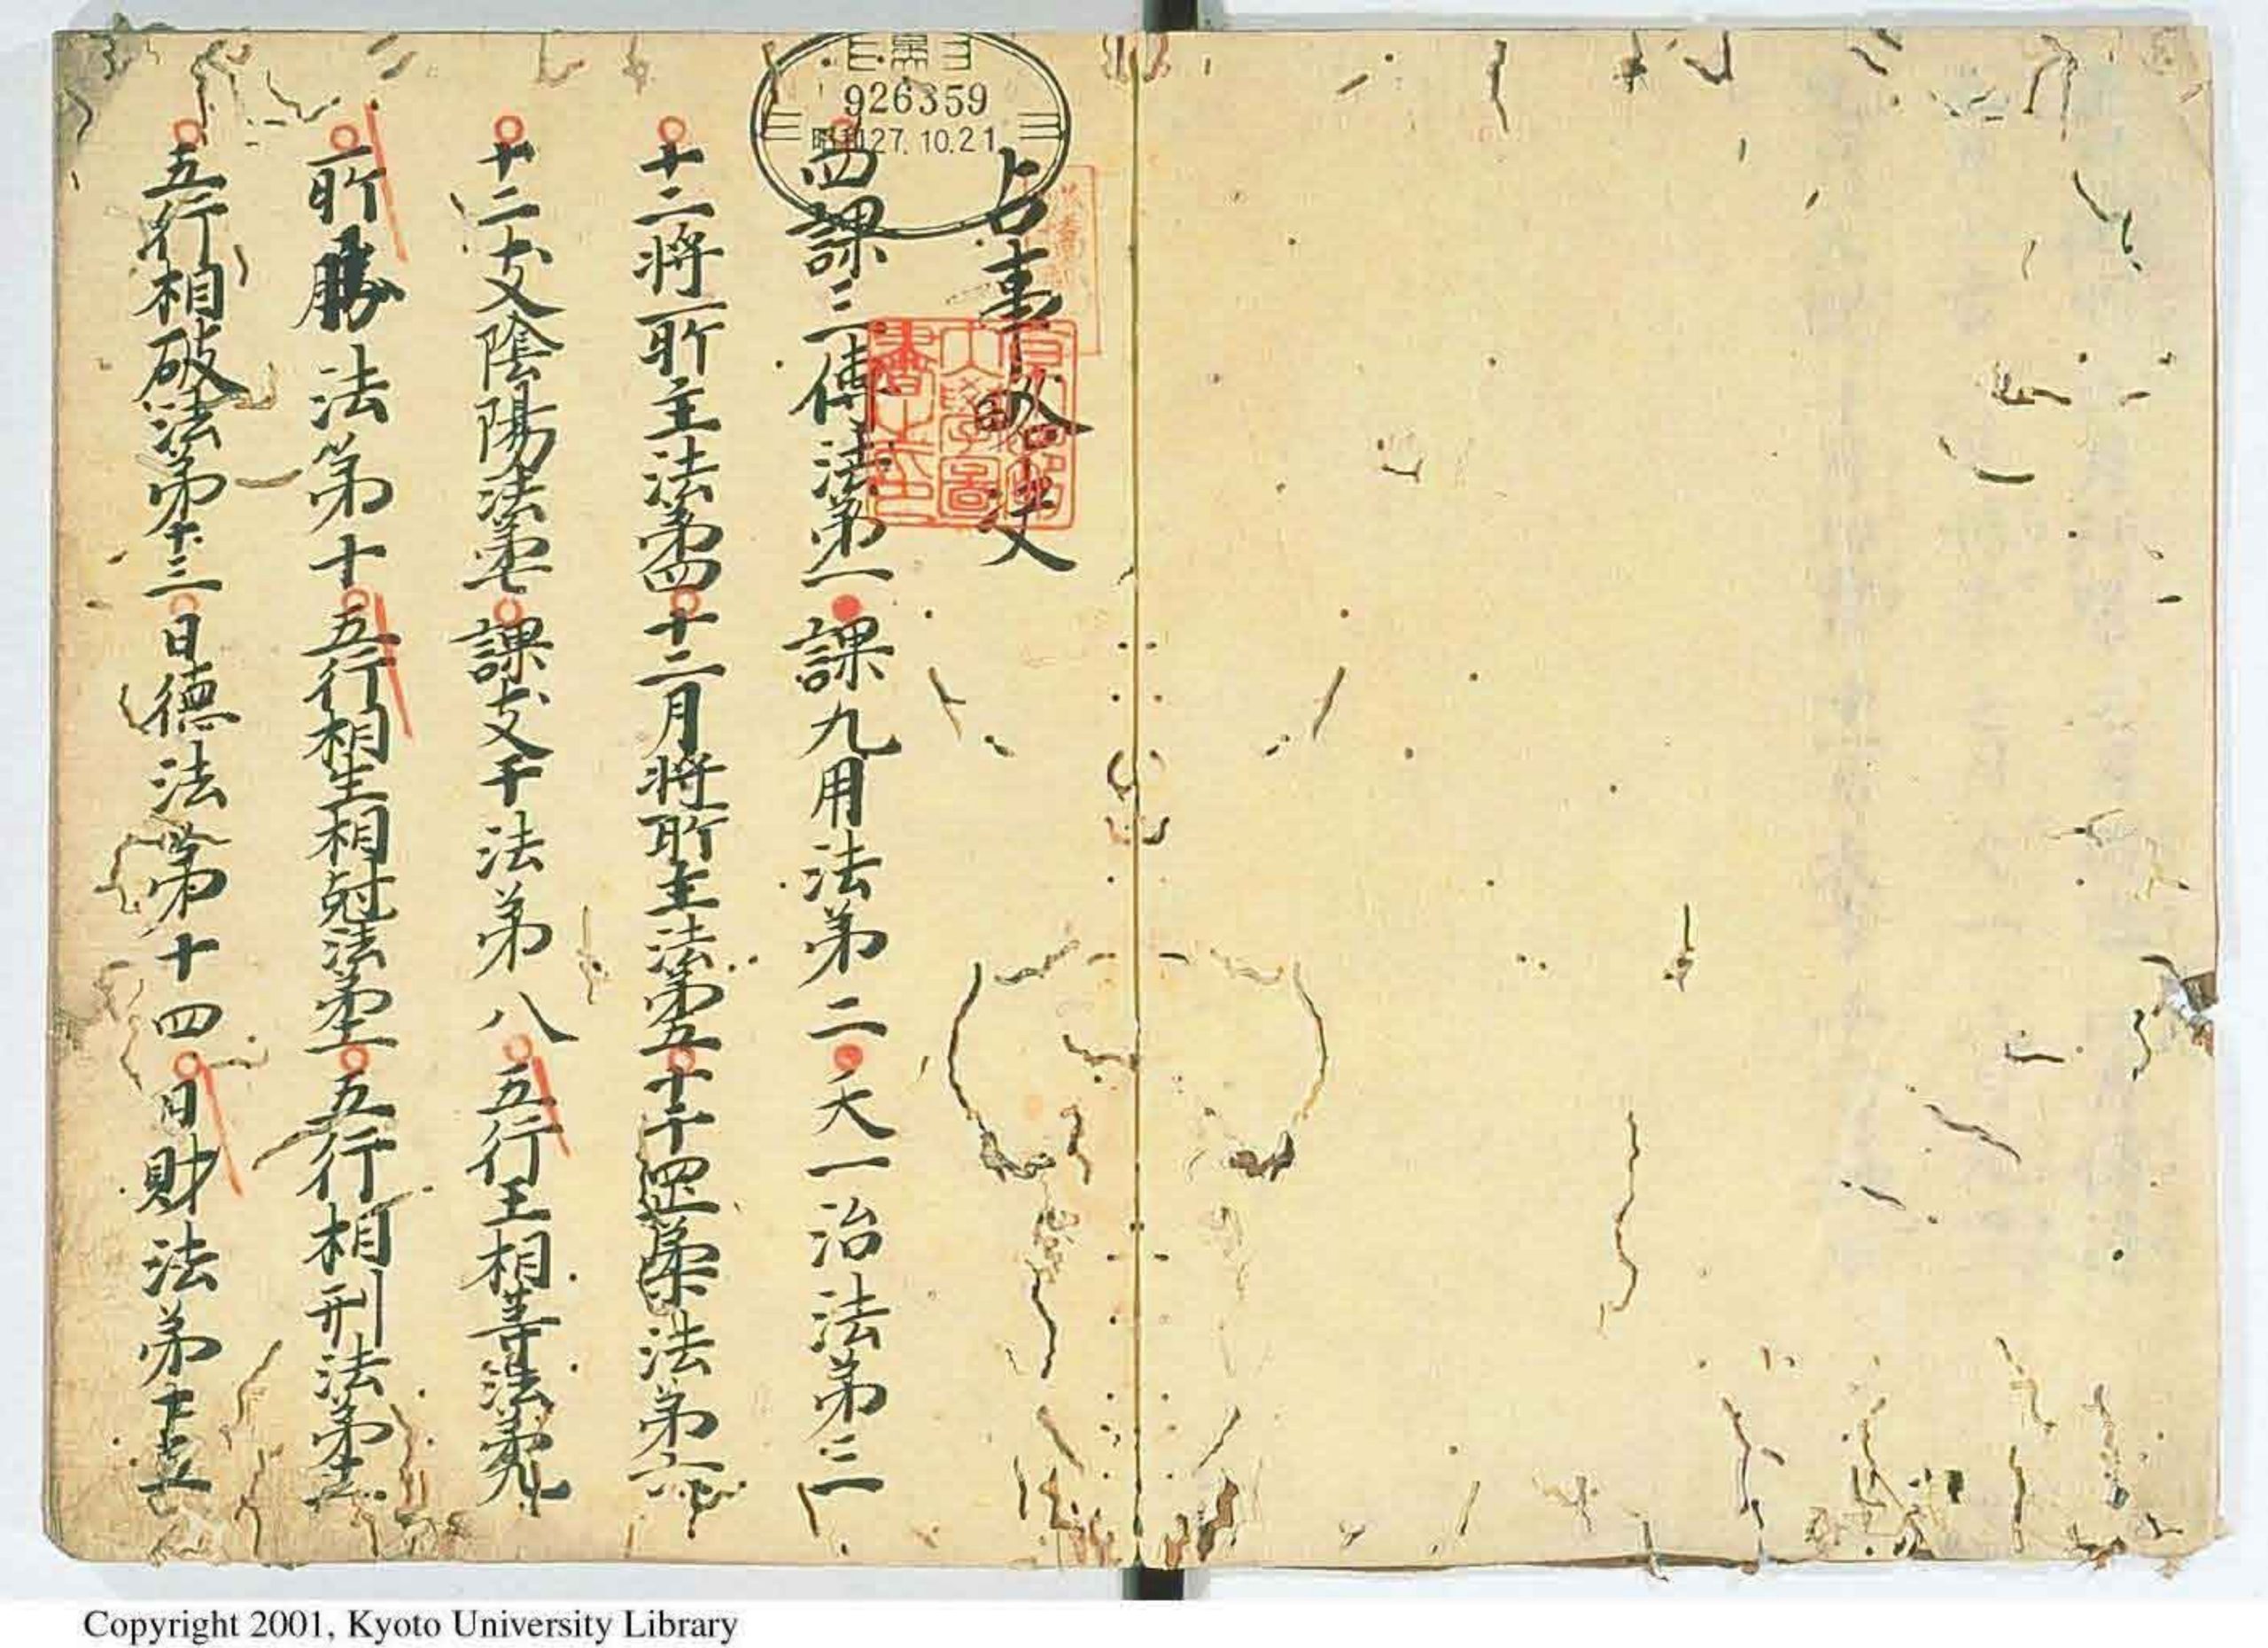 占事略决
四課三傳法第一 課九用法第二 天一治法第三
十二將所主法第四 十二月將所主法第五 十干罡藥法第六
十二支陰陽法第七 課支干法第八 五行王相等法第九
所勝法第十 五行相生相尅法第十一 五行相刑法第十二
五行相破法第十三 日德法第十四 日財法第十五
926359
昭和27.10.21
京都帝國大學圖書之印
Copyright 2001, Kyoto University Library